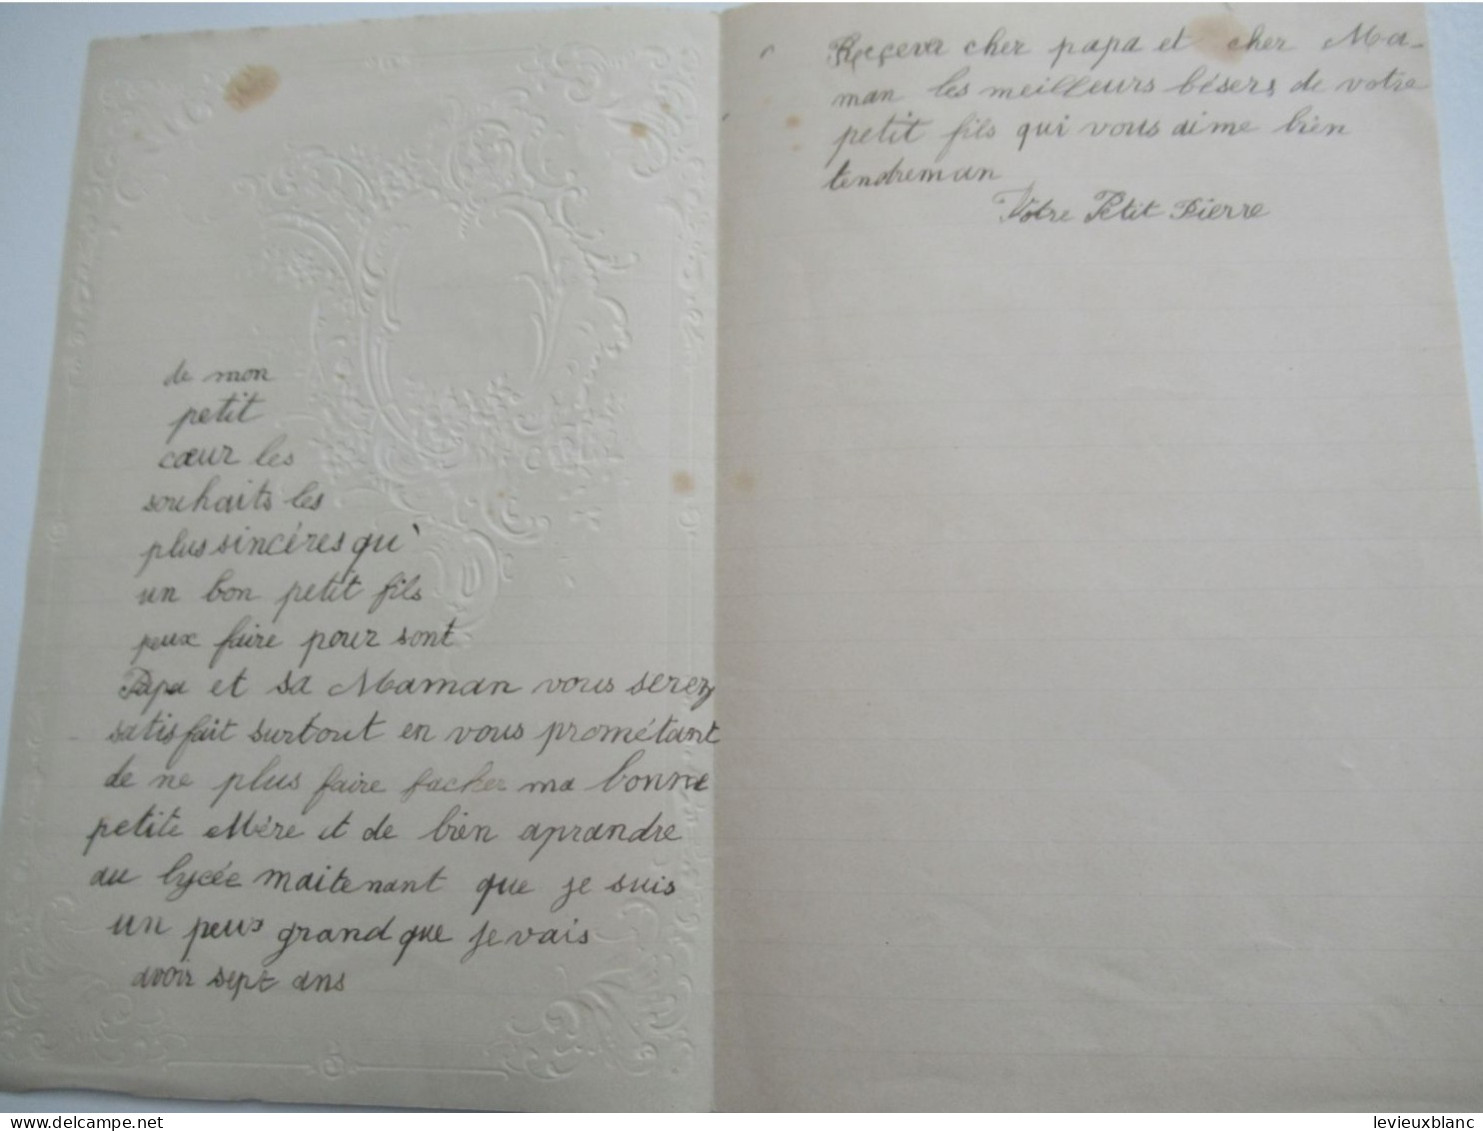 de mon
petit
cœur les
souhaits les
plus sincéres qu'
un bon petit fils
peux faire pour sont
Papa et sa Maman vous serez
satisfait surtout en vous prométant
de ne plus faire facher ma bonne
petite Mére et de bien aprandre
au lycée maitenant que je suis
un peux grand que je vais
avoir sept ans
Reçever cher papa et cher Ma-
man les meilleurs bésers de votre
petit fils qui vous aime bien
tendreman
Votre Petit Pierre
levieuxblanc